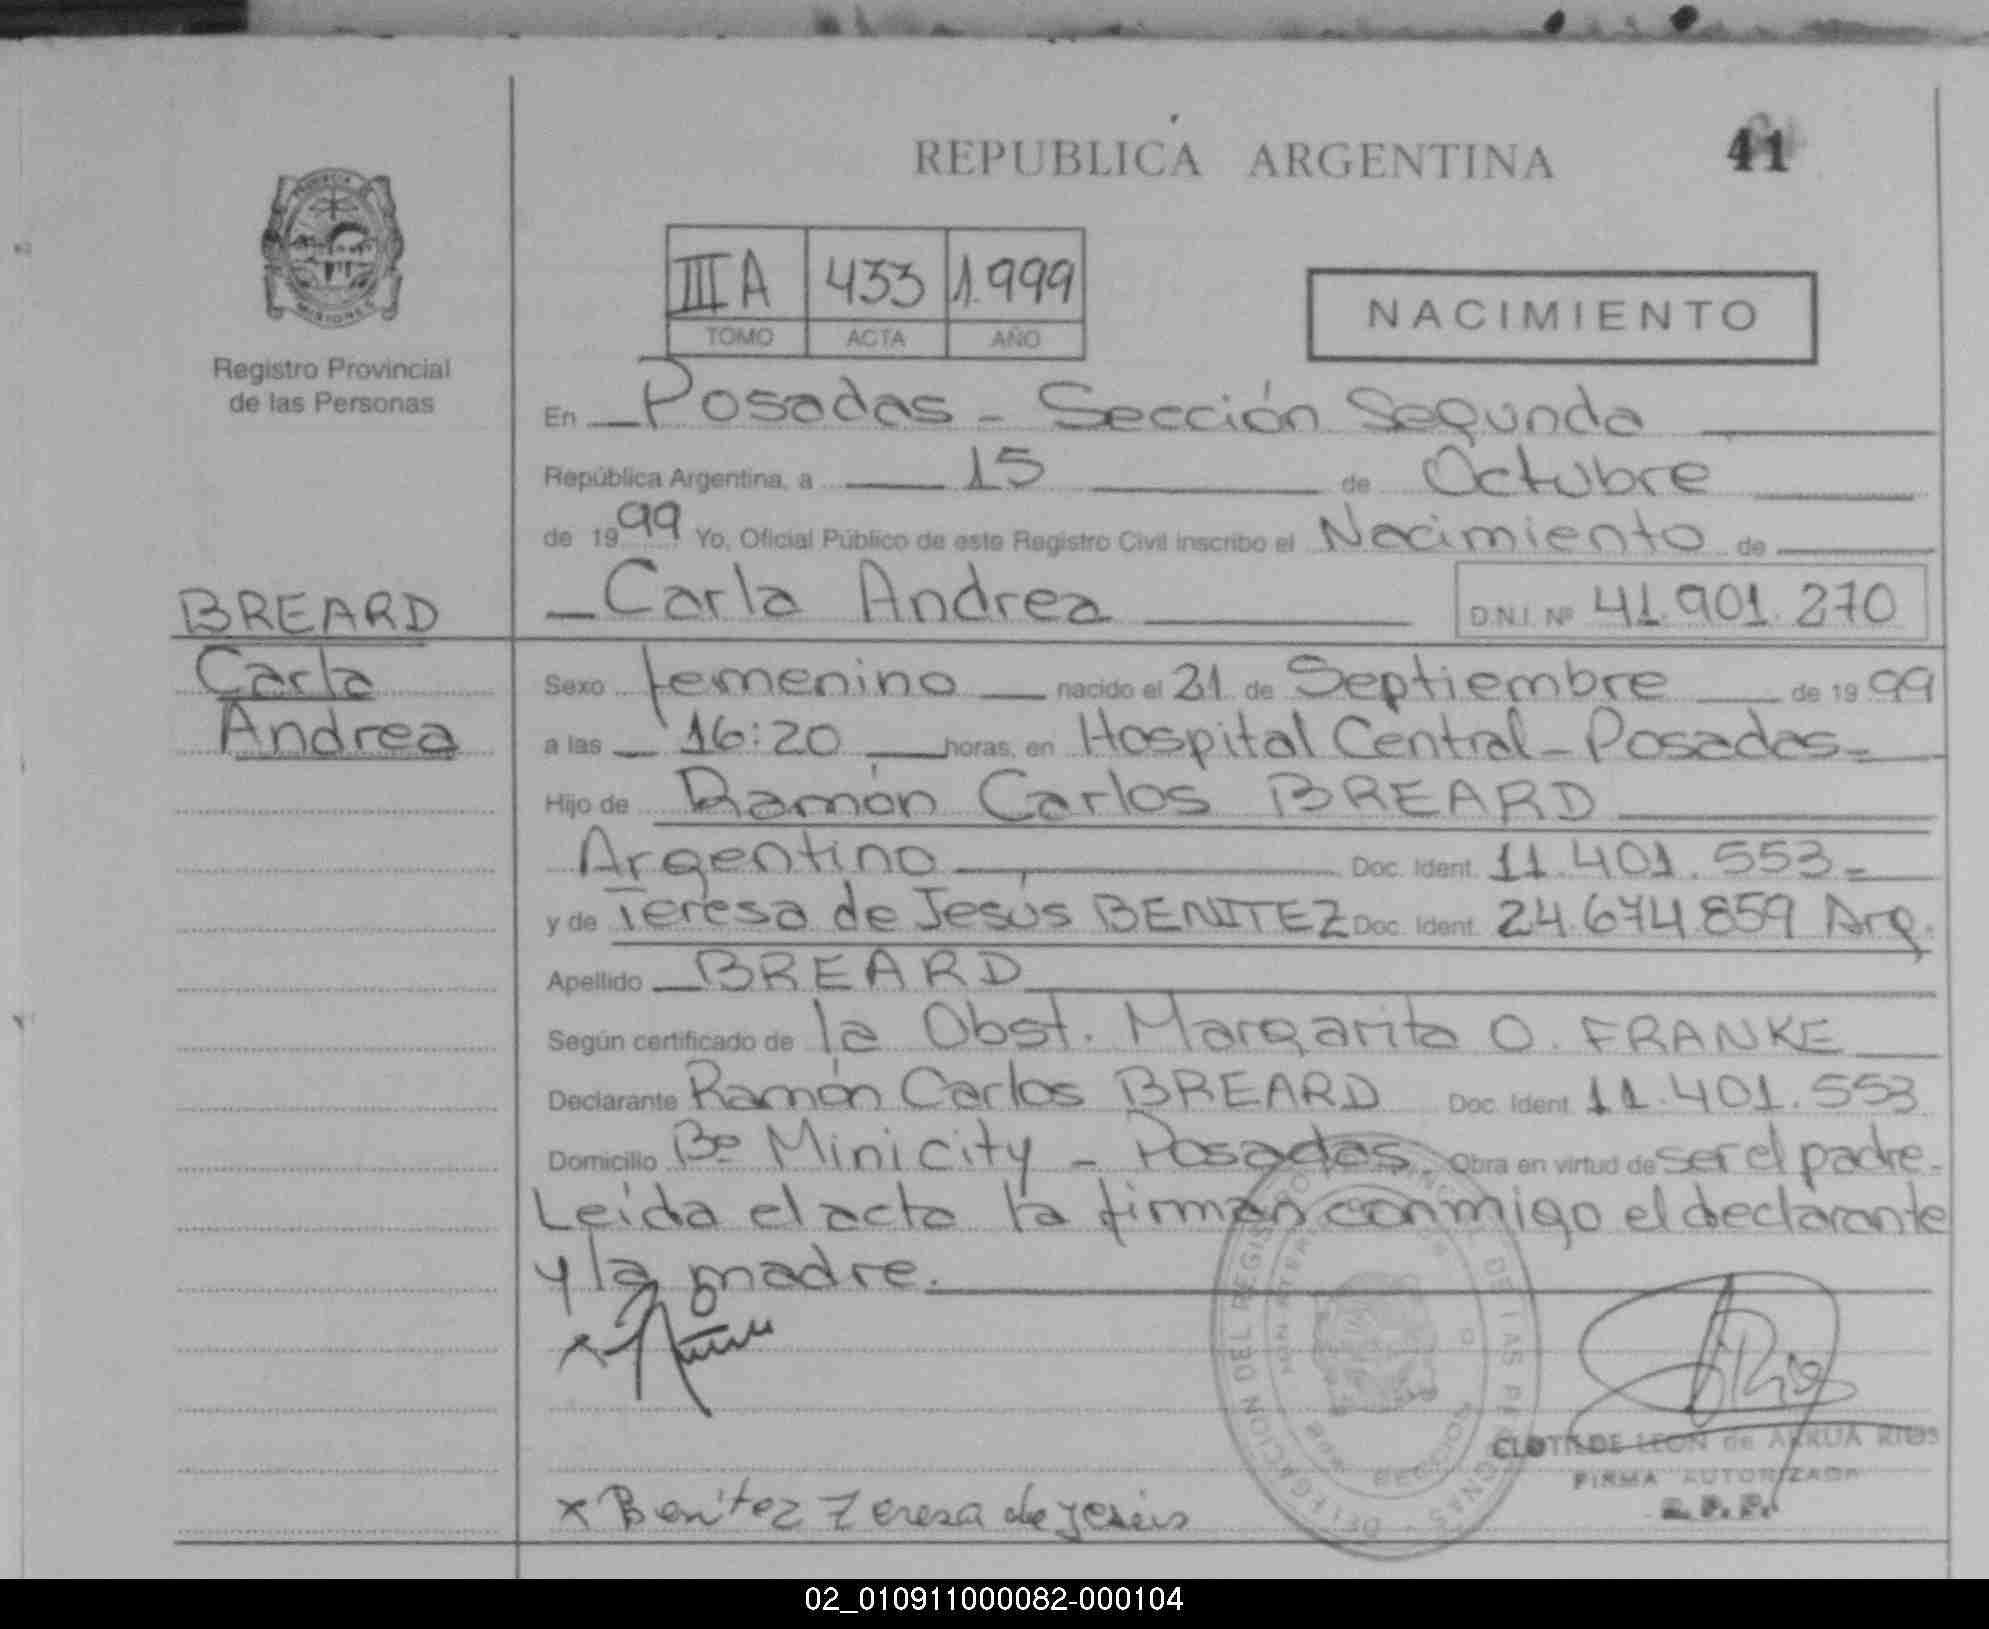 REPUBLICA ARGENTINA
41
PROVINCIA DE
MISIONES
Registro Provincial
de las Personas
III A 433 1.999
TOMO ACTA AÑO
NACIMIENTO
En Posadas - Sección Segunda
República Argentina, a 15 de Octubre
de 1999 Yo, Oficial Público de este Registro Civil inscribo el Nacimiento de
BREARD
Carla
Andrea
Carla Andrea D.N.I. Nº 41.901.270
Sexo femenino nacido el 21 de Septiembre de 1999
a las 16:20 horas, en Hospital Central - Posadas=
Hijo de Ramón Carlos BREARD
Argentino Doc. Ident. 11.401.553=
y de Teresa de Jesús BENITEZ Doc. Ident. 24.674.859 Arg.
Apellido BREARD
Según certificado de la Obst. Margarita O. FRANKE
Declarante Ramón Carlos BREARD Doc. Ident. 11.401.553
Domicilio Bº Minicity - Posadas. Obra en virtud de ser el padre.-
Leida el acta la firman conmigo el declarante
y la madre.
x
DELEGACION DEL REGISTRO PROVINCIAL DE LAS PERSONAS
CLOTILDE LEON de ARRUA RIOS
FIRMA AUTORIZADA
x Benitez Teresa de Jesús
02_010911000082-000104